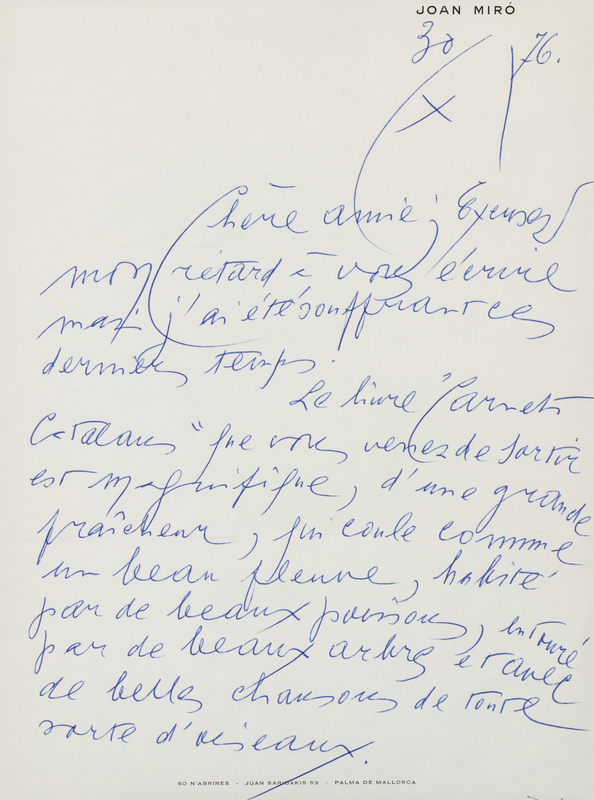 JOAN MIRÓ
30 X 76.
Chère amie, Excusez
mon retard à vous écrire
mais j'ai été souffrant ces
derniers temps.
Le livre "Carnets
Catalans" que vous venez de sortir
est magnifique, d'une grande
fraîcheur, qui coule comme
un beau fleuve, habité
par de beaux poissons, entouré
par de beaux arbres et avec
de belles chansons de toute
sorte d'oiseaux.
SO N'ABRINES - JUAN SARIDAKIS 53 - PALMA DE MALLORCA